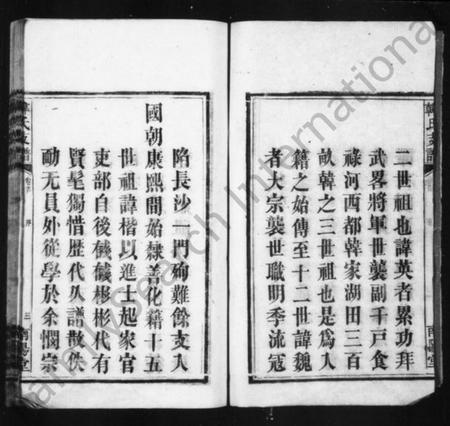 二世祖也諱英者累功拜
武畧將軍世襲副千戸食
祿河西都韓家湖田三百
畝韓之三世祖也是爲入
籍之始傳至十二世諱魏
者大宗襲世職明季流寇
陷長沙一門殉難餘支入
國朝康熙間始隸善化籍十五
世祖諱楷以進士起家官
吏部自後彧彧彬彬代有
賢髦獨惜歷代久譜散佚
勔无員外從學於余憫宗
氏支譜
三
南陽堂
FamilySearch International